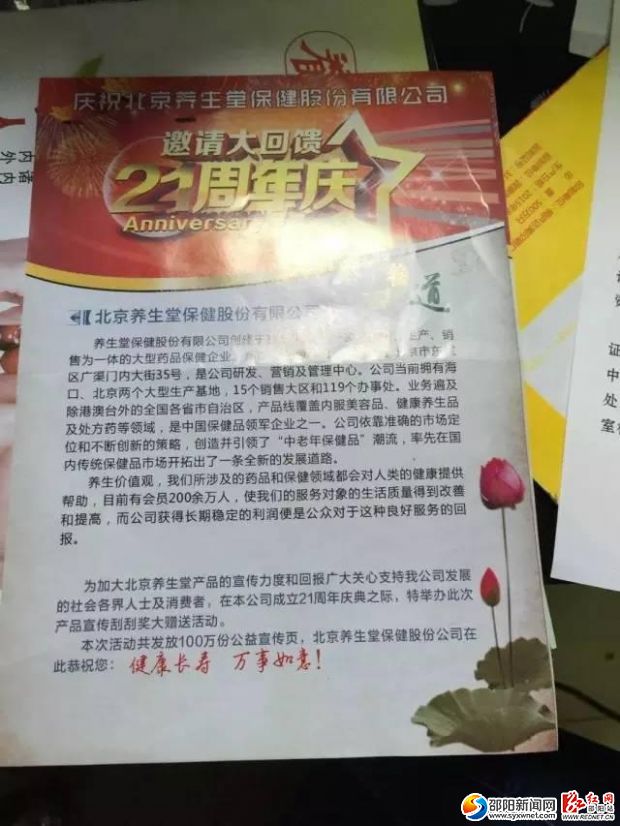 庆祝北京养生堂保健股份有限公司
邀请大回馈
21周年庆
Anniversary
道
北京养生堂保健股份有限公司
养生堂保健股份有限公司创建于
产、销
售为一体的大型药品保健企业
京市东
区广渠门内大街35号，是公司研发、营销及管理中心。公司当前拥有海
口、北京两个大型生产基地，15个销售大区和119个办事处。业务遍及
除港澳台外的全国各省市自治区，产品线覆盖内服美容品、健康养生品
及处方药等领域，是中国保健品领军企业之一。公司依靠准确的市场定
位和不断创新的策略，创造并引领了“中老年保健品”潮流，率先在国
内传统保健品市场开拓出了一条全新的发展道路。
养生价值观，我们所涉及的药品和保健领域都会对人类的健康提供
帮助，目前有会员200余万人，使我们的服务对象的生活质量得到改善
和提高，而公司获得长期稳定的利润便是公众对于这种良好服务的回
报。
为加大北京养生堂产品的宣传力度和回报广大关心支持我公司发展
的社会各界人士及消费者，在本公司成立21周年庆典之际，特举办此次
产品宣传刮刮奖大赠送活动。
本次活动共发放100万份公益宣传页，北京养生堂保健股份公司在
此恭祝您：健康长寿 万事如意！
证
中
处
室
邵阳新闻网
www.syxwnet.com
红网
邵阳站
WWW.REDNET.CN